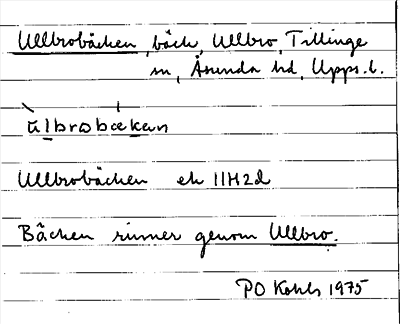 Ullbrobäcken, bäck, Ullbro, Tillinge
sn, Åsunda hd, Upps. l.
ùlbrobækan
Ullbrobäcken ek 11H2d
Bäcken rinner genom Ullbro.
PO Kohls 1975